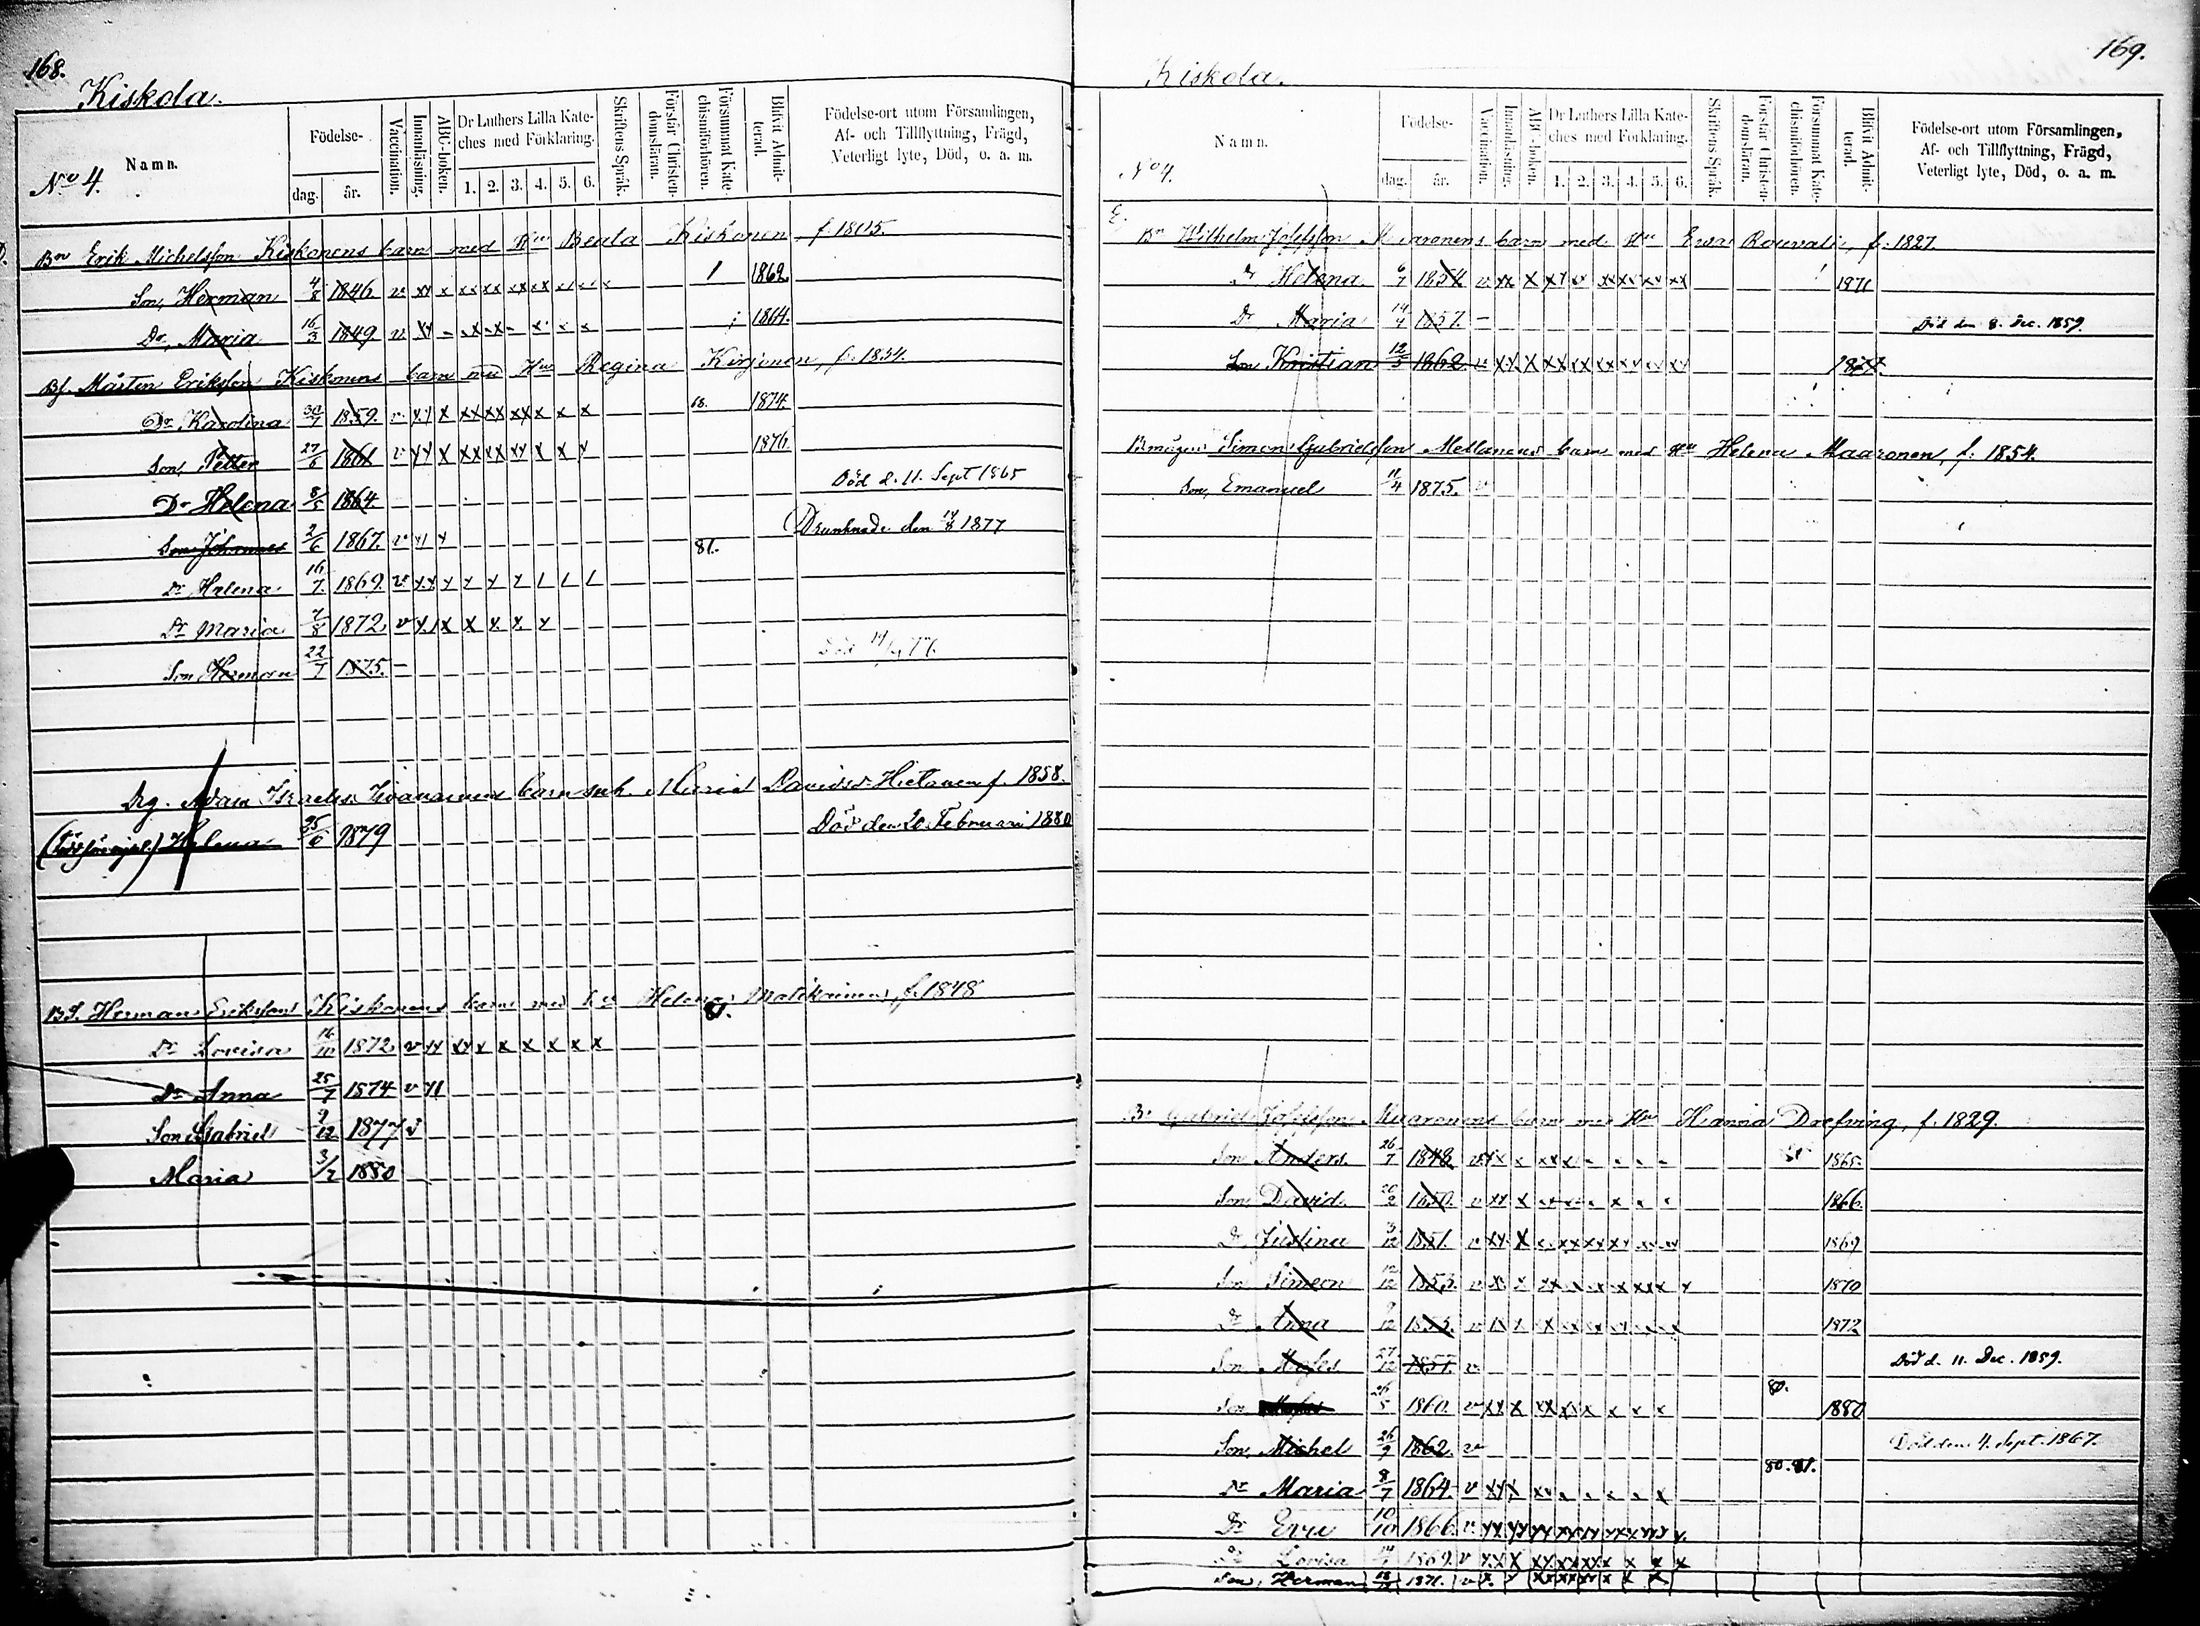 168.
Kiskola.
No 4.
Namn.
Födelse-
dag. år.
Vaccination.
Innanläsning.
ABC-boken.
Dr Luthers Lilla Kate-
ches med Förklaring.
1. 2. 3. 4. 5. 6.
Skriftens Språk.
Förstår Christen-
domsläran.
Försummat Kate-
chismiförhören.
Blifvit Admit-
terad.
Födelse-ort utom Församlingen,
Af- och Tillflyttning, Frägd,
Veterligt lyte, Död, o. a. m.
D. Bn Erik Michelsson Kiskonens barn med Hu Beata Kiskonen f. 1805.
Son, Herman 4/8 1846. v 1 1862.
Dr, Maria 16/3 1849. v 1864.
Bs. Mårten Eriksson Kiskonens barn med Hu Regina Kirjonen, f. 1834.
Dr Karolina 30/7 1859. v 68. 1874.
Son, Petter 27/6 1861 v 1876.
Dr Helena 8/5 1864. Död d. 11. Sept 1865
Son Johannes 2/6 1867. v Drunknade den 14/8 1877
Dr Helena 16/7 1869. v 81.
Dr Maria 7/8 1872. v
Son Herman 22/7 1875. Död
Drg. Adam Israelss. barn Maria Davidsd. Hietanen f. 1858.
Helena 25/6 1879 Död den 20 Februari 1880
BS. Herman Eriksson Kiskonens barn med Hu Helena Matikainen, f. 1848
Dr Lovisa 16/10 1872 v 81.
Dr Anna 25/7 1874 v
Son Gabriel 9/12 1877
Maria 3/2 1880
169.
Kiskola.
No 4.
Namn.
Födelse-
dag. år.
Vaccination.
Innanläsning.
ABC-boken.
Dr Luthers Lilla Kate-
ches med Förklaring.
1. 2. 3. 4. 5. 6.
Skriftens Språk.
Förstår Christen-
domsläran.
Försummat Kate-
chismiförhören.
Blifvit Admit-
terad.
Födelse-ort utom Församlingen,
Af- och Tillflyttning, Frägd,
Veterligt lyte, Död, o. a. m.
E.
Bn Wilhelm Josefsson Maaronens barn med Hu Ewa Rouvali, f. 1827.
Dr Helena 6/7 1854 v 1871
Dr Maria 14/4 1857. Död den 8. Dec. 1859.
Son Kristian 12/5 1862 v
Simon Gabrielsson barn med Hu Helena Maaronen, f. 1854.
Son, Emanuel 11/4 1875. v
Bn Gabriel Josefsson Maaronens barn med Hu Hanna Drefving, f. 1829.
Son Anders. 26/7 1848. v 1865.
Son, David. 20/2 1850. v 1866.
Dr Justina 3/12 1851. v 1869
Son Simeon 12/12 1853. v 1870
Dr Anna 9/12 1855. v 1872
Son Moses 27/12 1857. v Död d. 11. Dec. 1859.
Son 26/5 1860. v 80. 1880
Son, Michel 26/9 1862. v Död den 4. Sept. 1867.
Dr Maria 8/7 1864. v 80. 81.
Dr Eva 10/10 1866 v
Dr Lovisa 1869. v
Son, Herman 1871. v